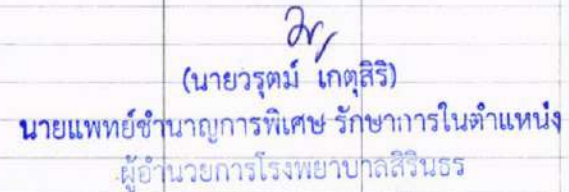 (นายวรุตม์ เกตุสิริ)
นายแพทย์ชำนาญการพิเศษ รักษาการในตำแหน่ง
ผู้อำนวยการโรงพยาบาลสิรินธร